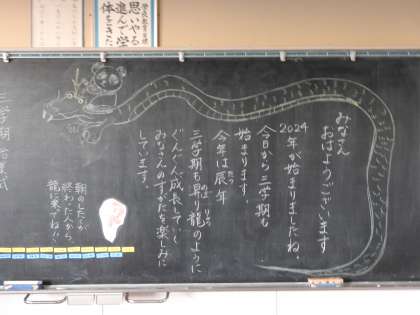 みなさん
おはようございます
2024年が始まりましたね。
今日から三学期も
始まります。
今年は辰年
たつ
三学期も昇り龍のように
のぼ りゅう
ぐんぐん成長していく
みなさんのすがたを楽しみに
しています。
朝のしたくが
終わった人から
龍を来てね!!
三学期 始業式
学校教育目標
思いやる
進んで学
体をきた